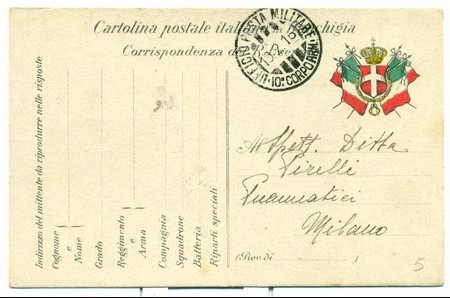 Cartolina postale italiana in franchigia
Corrispondenza del R. Esercito
POSTA MILITARE
10° CORPO ARM
All Spett. Ditta
Pirelli
Pneumatici
Milano
(Prov. di )
5
Indirizzo del mittente da riprodurre nelle risposte
Cognome
e
Nome
Grado
Reggimento
e
Arma
Compagnia
Squadrone
Batteria
Riparti speciali